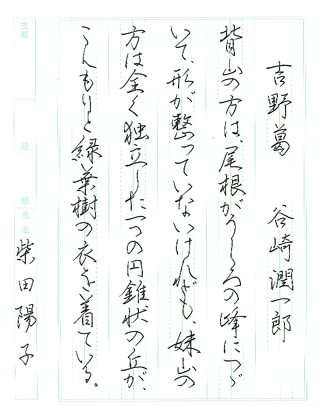 吉野葛　谷崎潤一郎
背山の方は、尾根がうしろの峰につゞ
いて、形が整っていないけれども、妹山の
方は全く独立した一つの円錐状の丘が、
こんもりと緑葉樹の衣を着ている。
支部
段
級
氏名
柴田陽子